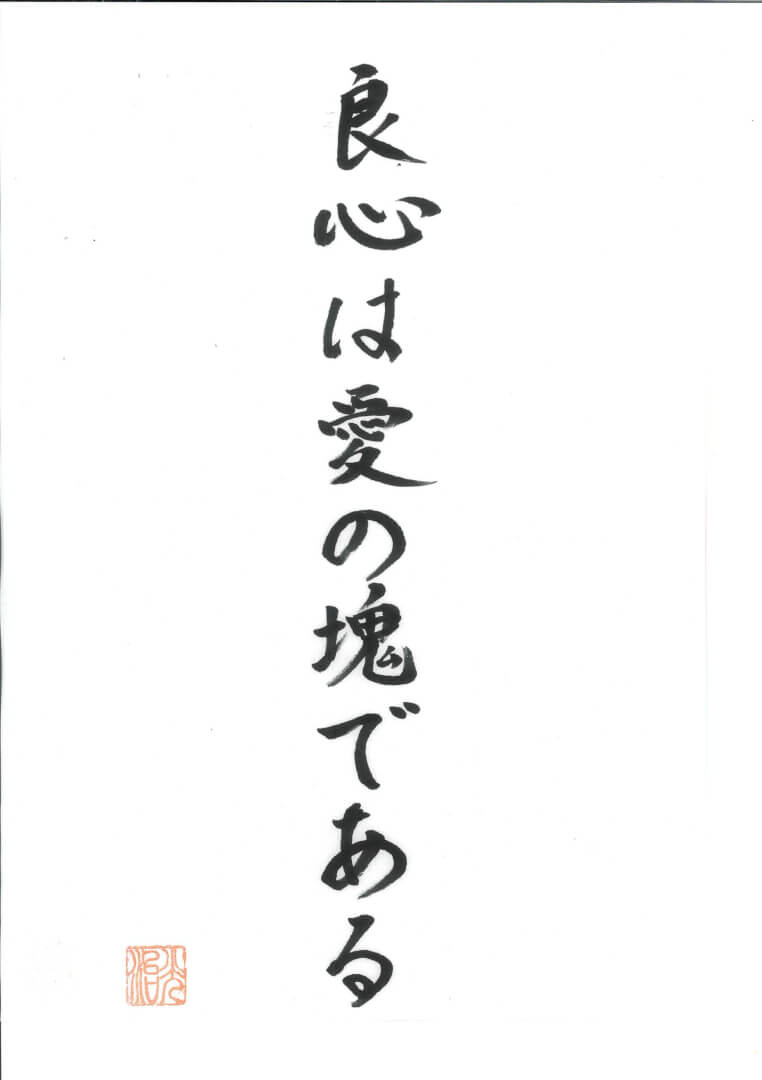 良心は愛の塊である